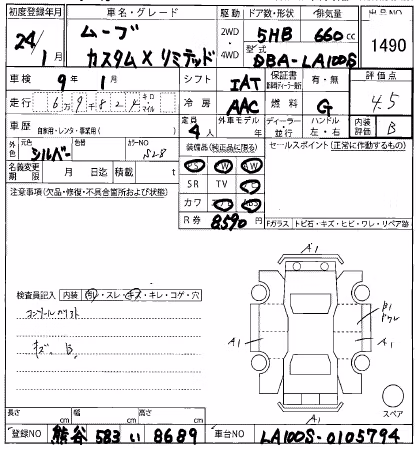 初度登録年月 車名・グレード 駆動 ドア数・形状 排気量 出品NO
24/1月 ムーブ カスタムX リミテッド 2WD・4WD 5HB 660cc 1490
型式 DBA-LA100S
車検 9年1月 シフト IAT 保証書 有・無 評価点
走行 6万9千824 キロ マイル 冷房 AAC 燃料 G 4.5
車歴 自家用・レンタ・事業用( ) 定員 4人 外車モデル 年 ディーラー 並行 ハンドル 左・右 内装評価 B
外色 元色 シルバー 色替 カラーNO S28 装備品(純正品に限る) セールスポイント(正常に動作するもの)
名義変更期限 月 日迄 積載 t PS PW AW
注意事項(欠品・修復・不具合箇所および状態) SR TV
カワ ABS
R券 8590円
Fガラス トビ石・キズ・ヒビ・ワレ・リペア跡
A1
検査員記入 内装 ・スレ・キズ・キレ・コゲ・穴
B1
A1 A1
キズ、B、
A1 スペア
長さ cm 幅 cm 高さ cm
登録NO 熊谷 583 い 8689 車台NO LA100S-0105794